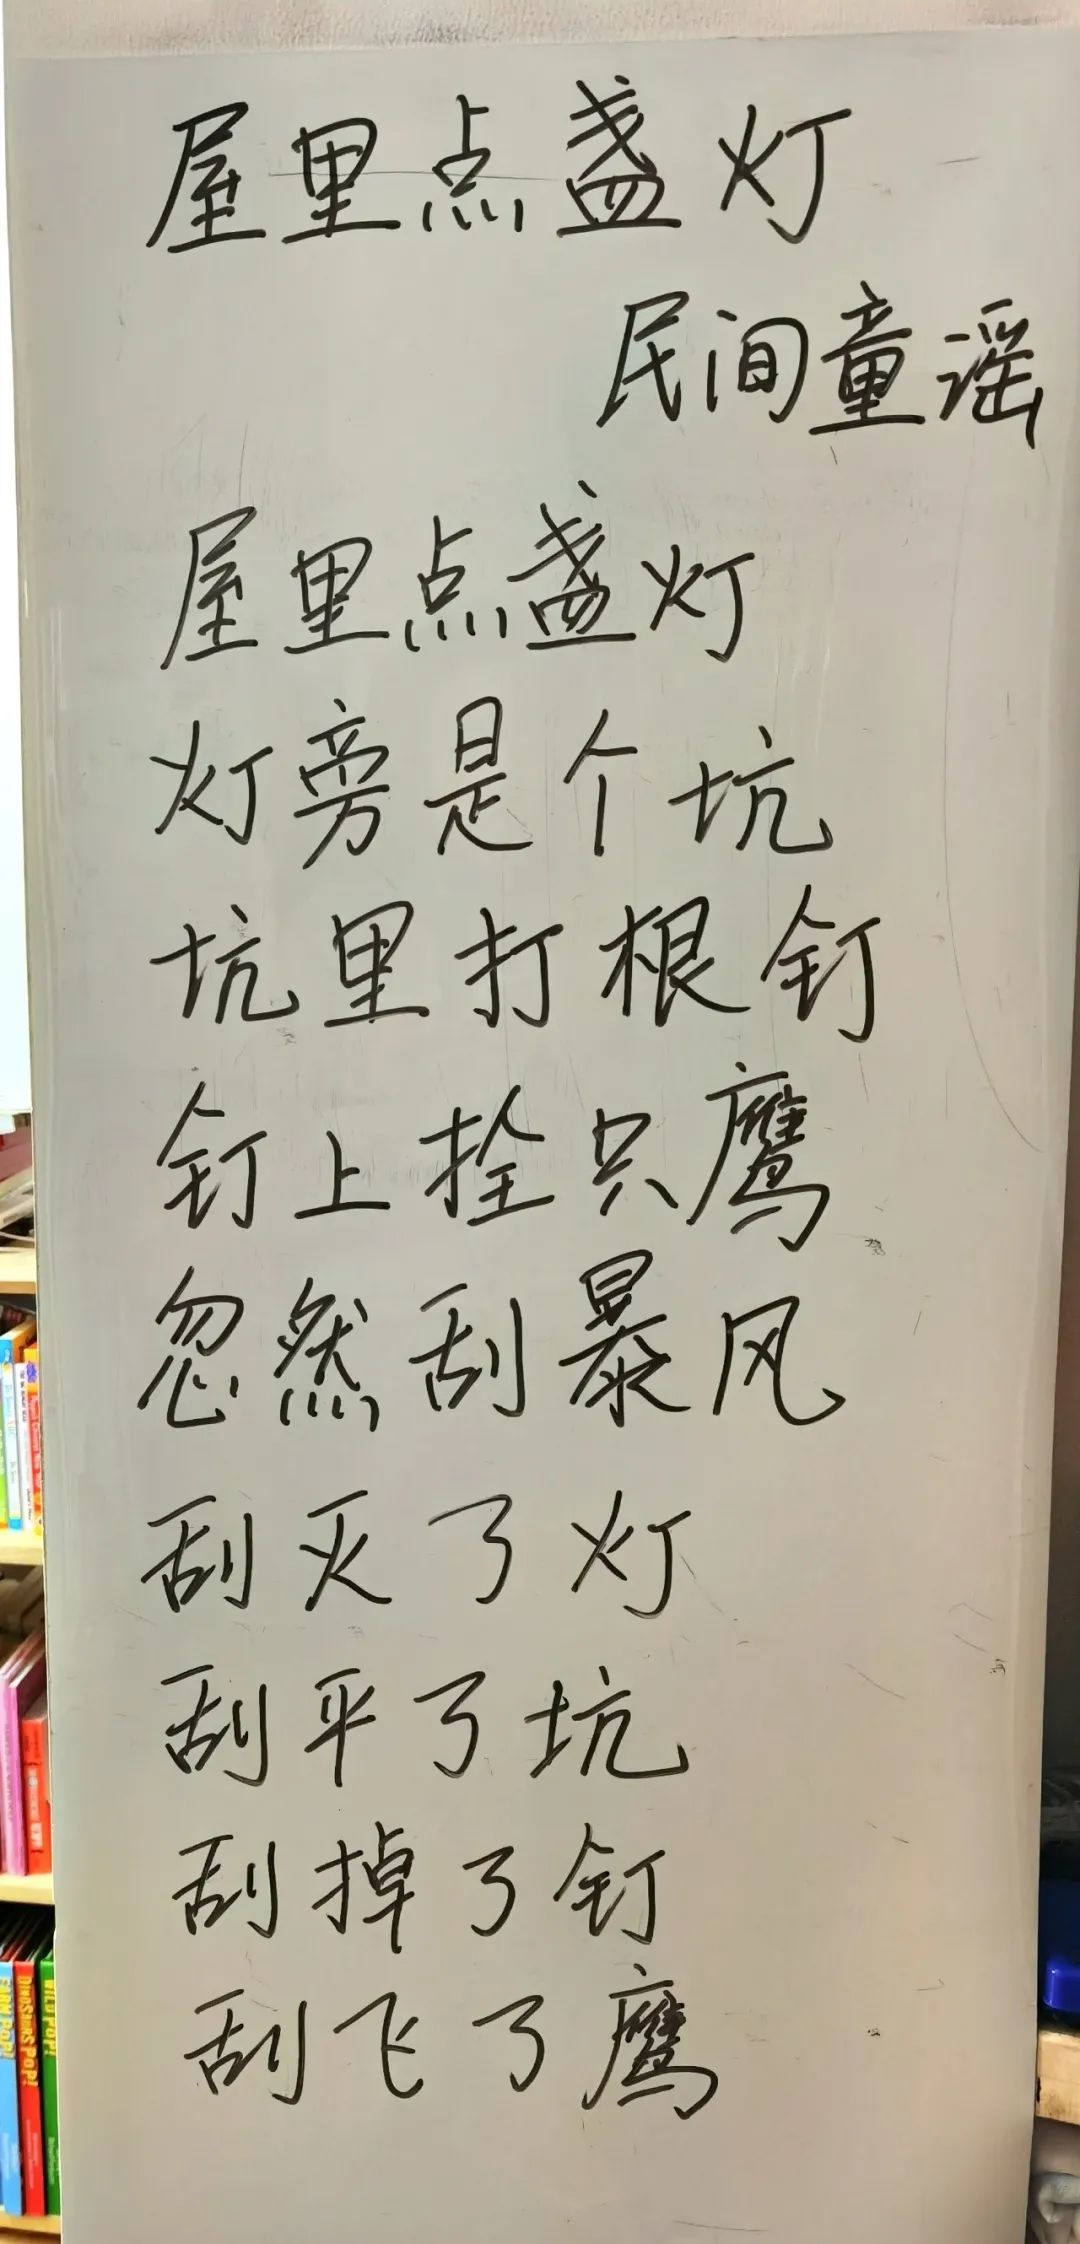 屋里点盏灯
民间童谣
屋里点盏灯
灯旁是个坑
坑里打根钉
钉上拴只鹰
忽然刮暴风
刮灭了灯
刮平了坑
刮掉了钉
刮飞了鹰
FARM POP!
DINOSAURS POP!
WILD POP!